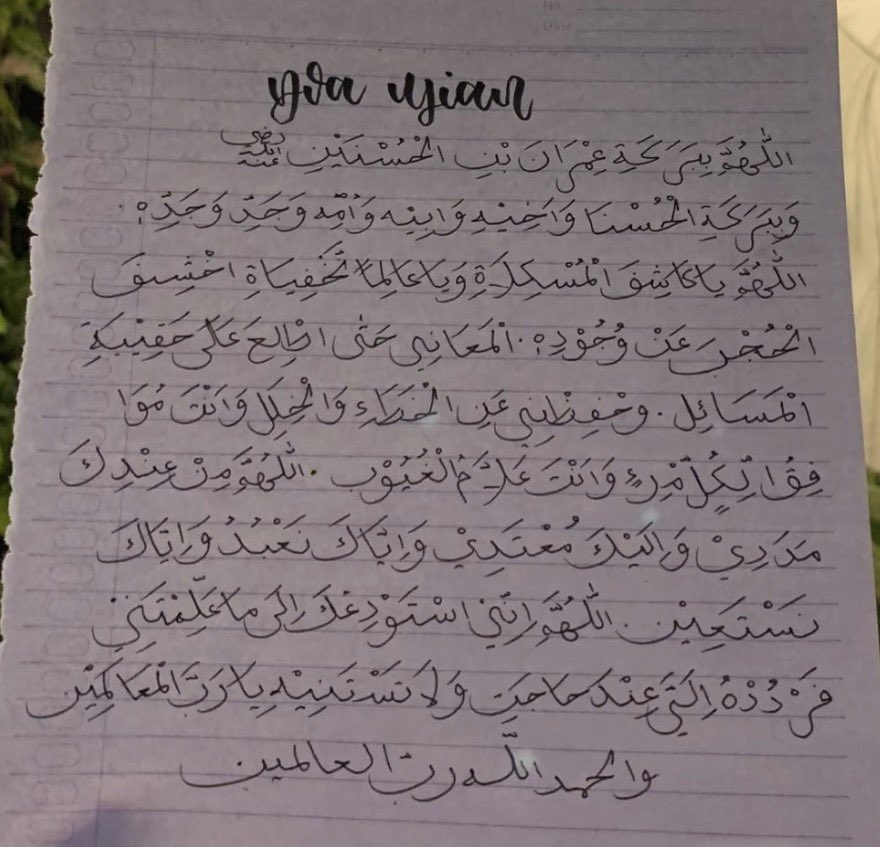 Doa ujian
اللّٰهُمَّ بِبَرَكَةِ عِمْرَانَ بْنِ الْحُسْنَيْنِ رضي الله عنه
وَبِبَرَكَةِ الْحُسْنَا وَاَخِيْهِ وَابِيْهِ وَاُمِّهِ وَجَدِّ وَجَدِّهِ.
اللّٰهُمَّ يَا كَاشِفَ الْمُسْكِلَاةِ وَيَا عَالِمَا لْخَفِيَاةِ اخْشِفَ
الْحُجْبَ عَنْ وُجُوْدِهِ. الْمَعَانِي حَتَّى اطَّالِعَ عَلَى حَقِيْبَةِ
الْمَسَائِل. وَحْفِظْنِي عَنِ الْخَطَاءِ وَالْخِلَلِ وَانْتَ مُوَا
فِقُ لِّكُلِّ مْرِءٍ وَانْتَ عَلَّامُ الْغُيُوْبِ. اللّٰهُمَّ مِنْ عِنْدِكَ
مَدَدِيْ وَاِلَيْكَ مُعْتَدِيْ وَاِيَّاكَ نَعْبُدُ وَاِيَّاكَ
نَسْتَعِيْن. اللّٰهُمَّ اِنِّيْ اسْتَوْدِعُكَ اِلَى مَا عَلَّمْتَنِيْ
فَرْدُدْهُ اِلَيَّ عِنْدَ حَاجَتِ وَلَا تَسْتَنِيْهِ يَا رَبَّ الْعَالَمِيْن
والحمد اللّه ربّ العالمين